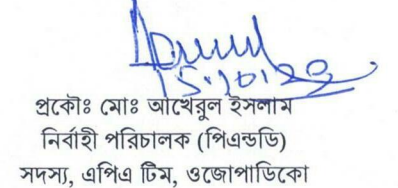 15.10.20
প্রকৌঃ মোঃ আখেরুল ইসলাম
নির্বাহী পরিচালক (পিএন্ডডি)
সদস্য, এপিএ টিম, ওজোপাডিকো